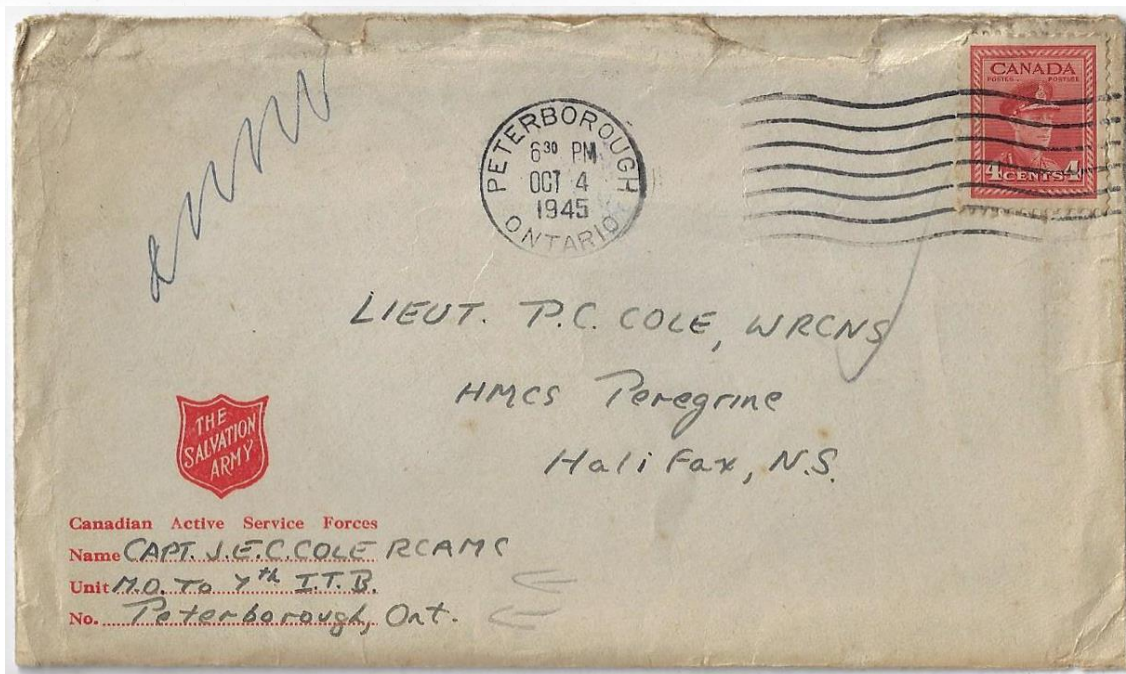 CANADA
POSTES POSTAGE
4 CENTS 4
PETERBOROUGH
6³⁰ PM
OCT 4
1945
ONTARIO
LIEUT. P.C. COLE, WRCNS
HMCS Peregrine
Halifax, N.S.
THE
SALVATION
ARMY
Canadian Active Service Forces
Name CAPT. J.E.C. COLE RCAMC
Unit M.O. To 7th I.T.B.
No. Peterborough, Ont.